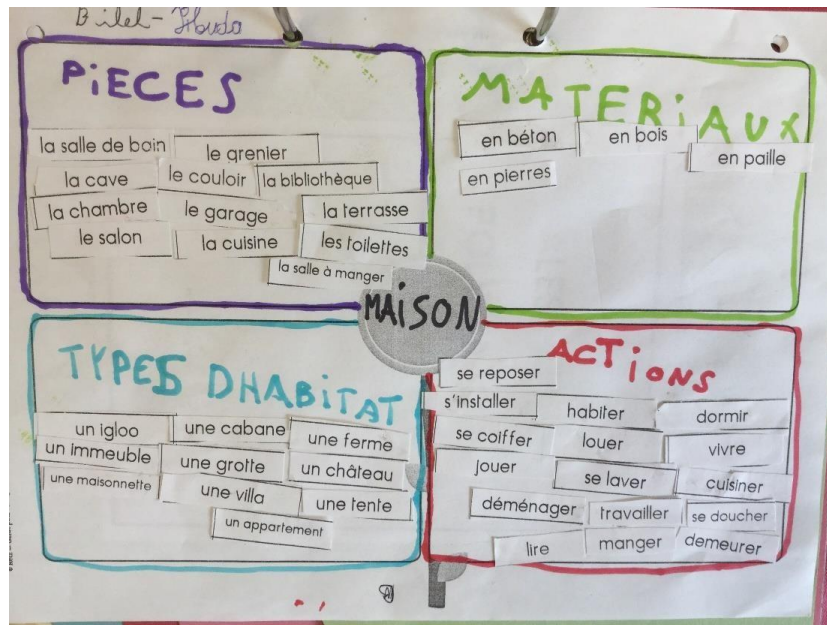 Bilel - Houda
PiECES
la salle de bain
le grenier
la cave
le couloir
la bibliothèque
la chambre
le garage
la terrasse
le salon
la cuisine
les toilettes
la salle à manger
MATERiAUX
en béton
en bois
en paille
en pierres
MAiSON
TYPES DHABiTAT
un igloo
une cabane
une ferme
un immeuble
une grotte
un château
une maisonnette
une villa
une tente
un appartement
ACTiONS
se reposer
s'installer
habiter
dormir
se coiffer
louer
vivre
jouer
se laver
cuisiner
déménager
travailler
se doucher
lire
manger
demeurer